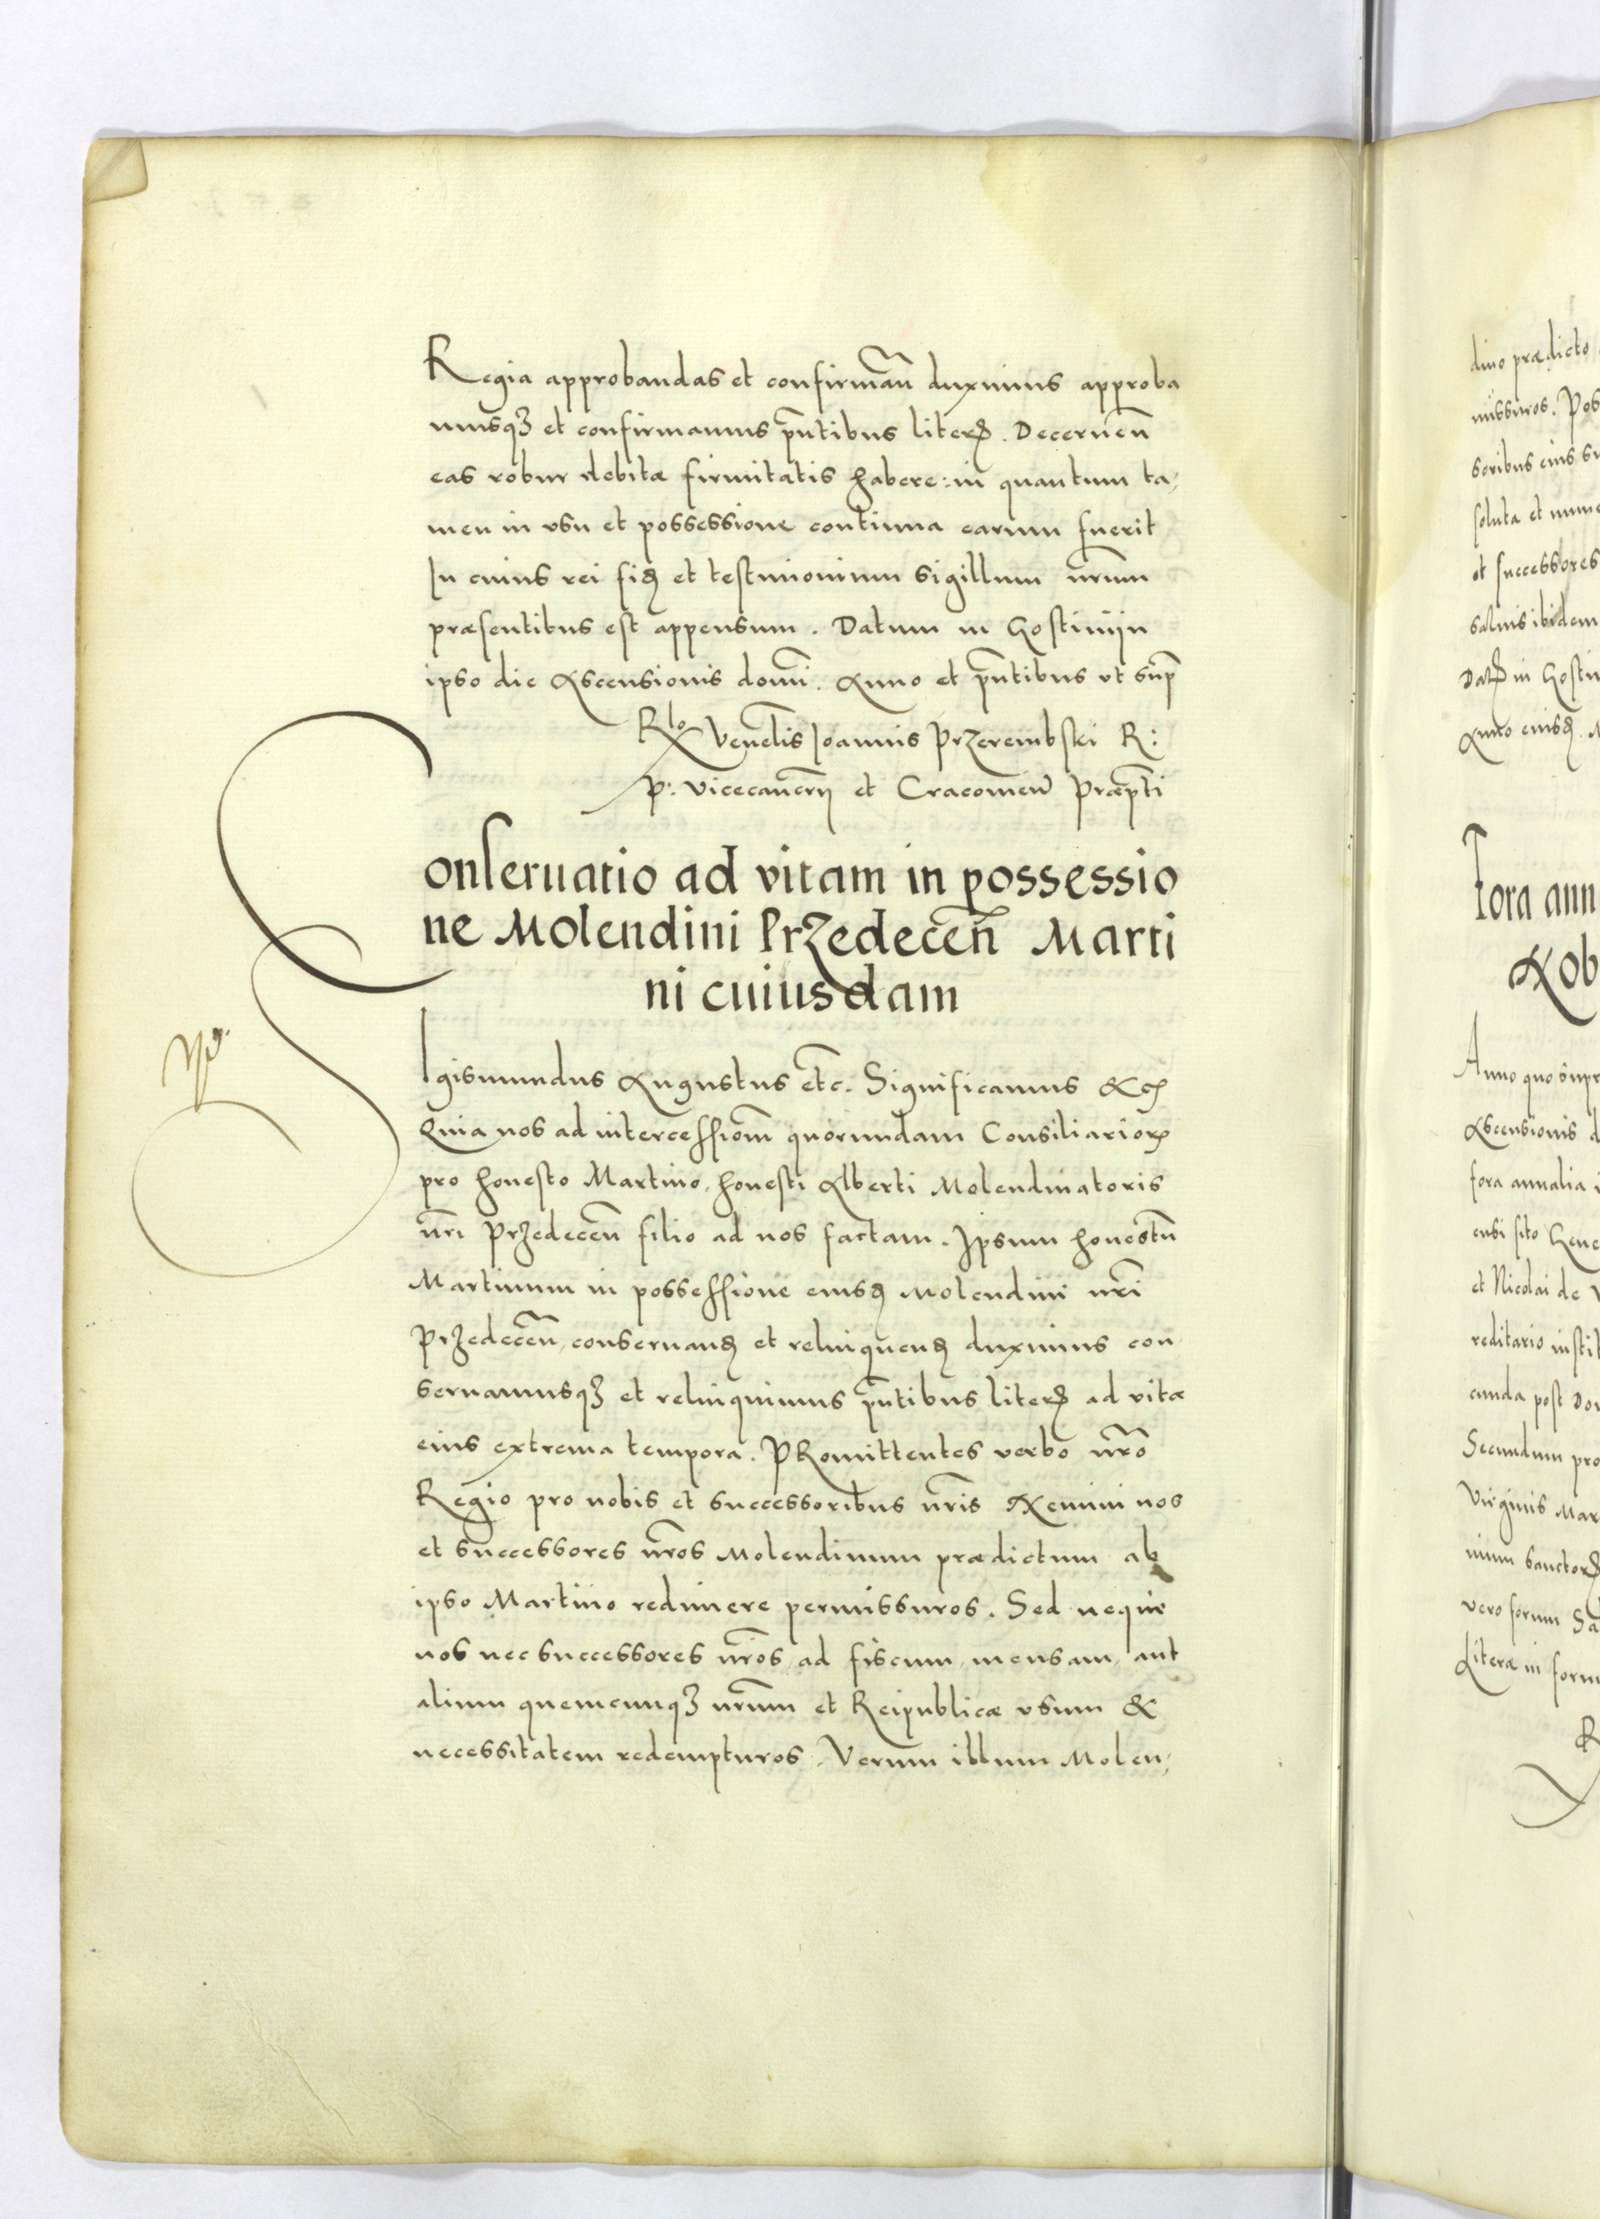 Regia approbandas et confirmañ duximus approba
musqꝫ et confirmamus pñtibus literꝭ. Decernen̄
eas robur debitæ firmitatis habere: in quantum ta,
men in vsu et possessione continua earum fuerit
In cuius rei fidꝭ et testimonium sigillum nr̄um
præsentibus est appensum. Datum in Gostiniin
ipso die Ascensionis domi. Anno et pñtibus vt sup̄
Rlo Venelis Joannis Przerembski R:
P: vicecancrii et Cracovien Præpti
Conseruatio ad vitam in possessio
ne Molendini Przedeceñ Marti
ni cuiusdam
Sigismundus Augustus etc. Significamus &c
Quia nos ad intercessiom̄ quorundam Consiliarioꝝ
pro honesto Martino, honesti Alberti Molendinatoris
nr̄i Przedeceñ filio ad nos factam. Ipsum honestū
Martinum in possessione eiusdꝭ Molendini nr̄i
Przedeceñ, conseruandꝭ et relinquendꝭ duximus con
seruamusqꝫ et relinquimus pñtibus literꝭ ad vitæ
eius extrema tempora. PRomittentes verbo nr̄o
Regio pro nobis et successoribus nr̄is Neminj nos
et successores nr̄os Molendinum prædictum ab
ipso Martino redimere permissuros. Sed neque
nos nec successores nr̄os, ad fiscum, mensam, aut
alium quemcunqꝫ nr̄um et Reipublicæ vsum &
necessitatem redempturos. Verum illum Molen,
dino prædicto
missuros. Pos
soribus eius su
soluta et nume
et successores
saluis ibidem
Datꝭ in Gosti
Anno eiusdꝭ. M
Fora ann
Anno quo supr
Ascensionis d
fora annalia i
ensi sito Gene
et Nicolai de
reditario instit
cunda post Do
Secundum pro
Virginis Mar
nium sanctorꝭ
vero forum Sa
Literæ in form
R